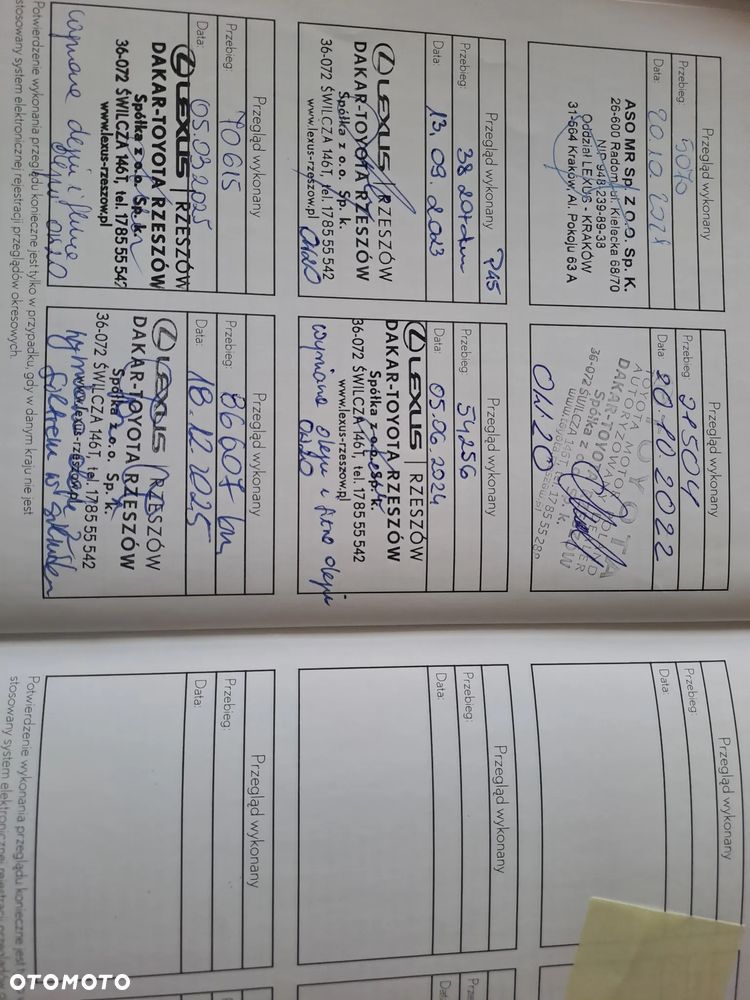 Przegląd wykonany
Przebieg: 5070
Data: 20.10.2021
ASO MR Sp. Z O.O. Sp. K.
26-600 Radom, ul. Kielecka 68/70
NIP 948-239-89-38
Oddział LEXUS - KRAKÓW
31-564 Kraków, Al. Pokoju 63 A
Przegląd wykonany
Przebieg: 21504
Data: 20.10.2022
TOYOTA
DAKAR-TOYO
Spółka z
36-072 ŚWILCZA
0W20
Przegląd wykonany P45
Przebieg: 38207 km
Data: 13.09.2023
LEXUS RZESZÓW
DAKAR-TOYOTA RZESZÓW
Spółka z o.o. Sp. k.
36-072 ŚWILCZA 146T, tel. 17 85 55 542
www.lexus-rzeszow.pl
0W20
Przegląd wykonany
Przebieg: 54256
Data: 05.06.2024
LEXUS RZESZÓW
DAKAR-TOYOTA RZESZÓW
Spółka z o.o. Sp. k.
36-072 ŚWILCZA 146T, tel. 17 85 55 542
www.lexus-rzeszow.pl
wymiana oleju i filtra oleju
0W20
Przegląd wykonany
Przebieg: 70615
Data: 05.03.2025
LEXUS RZESZÓW
DAKAR-TOYOTA RZESZÓW
Spółka z o.o. Sp. k.
36-072 ŚWILCZA 146T, tel. 17 85 55 542
www.lexus-rzeszow.pl
wymiana oleju i filtra
oleju 0W20
Przegląd wykonany
Przebieg: 86607 km
Data: 18.12.2025
LEXUS RZESZÓW
DAKAR-TOYOTA RZESZÓW
Spółka z o.o. Sp. k.
36-072 ŚWILCZA 146T, tel. 17 85 55 542
filtrem
Potwierdzenie wykonania przeglądu konieczne jest tylko w przypadku, gdy w danym kraju nie jest
stosowany system elektronicznej rejestracji przeglądów okresowych.
Przegląd wykonany
Przebieg:
Data:
Przegląd wykonany
Przebieg:
Data:
Przegląd wykonany
Przebieg:
Data:
Potwierdzenie wykonania przeglądu konieczne jest
stosowany system elektronicznej rejestracji
OTOMOTO